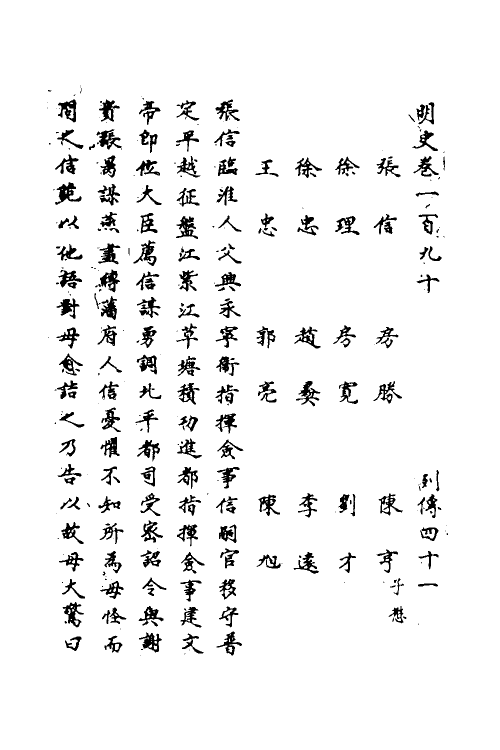 明史卷一百九十 列傳四十一
張信 房勝 陳亨 子懋
徐理 房寬 劉才
徐忠 趙彝 李遠
王忠 郭亮 陳旭
張信臨淮人父興永寧衛指揮僉事信嗣官移守普
定平越征盤江紫江草塘積功進都指揮僉事建文
帝即位大臣薦信謀勇調北平都司受密詔令與謝
貴張昺謀燕盡縛藩府人信憂懼不知所為母怪而
問之信詭以他語對母愈詰之乃告以故母大驚曰